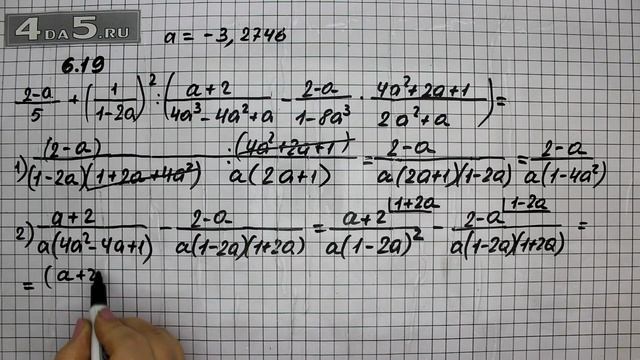 4DA5.RU
a = -3,2746
6.19
(2-a)/5 + (1/(1-2a))² : ((a+2)/(4a³-4a²+a) - (2-a)/(1-8a³) · (4a²+2a+1)/(2a²+a)) =
1) (2-a)/((1-2a)(1+2a+4a²)) : (4a²+2a+1)/(a(2a+1)) = (2-a)/(a(2a+1)(1-2a)) = (2-a)/(a(1-4a²))
2) (a+2)/(a(4a²-4a+1)) - (2-a)/(a(1-2a)(1+2a)) = (a+2)/(a(1-2a)²) |1+2a - (2-a)/(a(1-2a)(1+2a)) |1-2a =
= (a+2